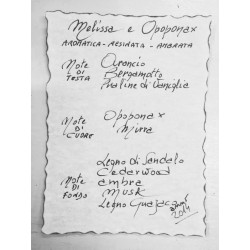 Melissa e Opoponax
AROMATICA - RESINATA - AMBRATA
NOTE DI TESTA
Arancio
Bergamotto
Praline di Vaniglia
NOTE DI CUORE
Opoponax
Mirra
NOTE DI FONDO
Legno di Sandalo
Cedarwood
ambra
Musk
Legno Guajaco
2014